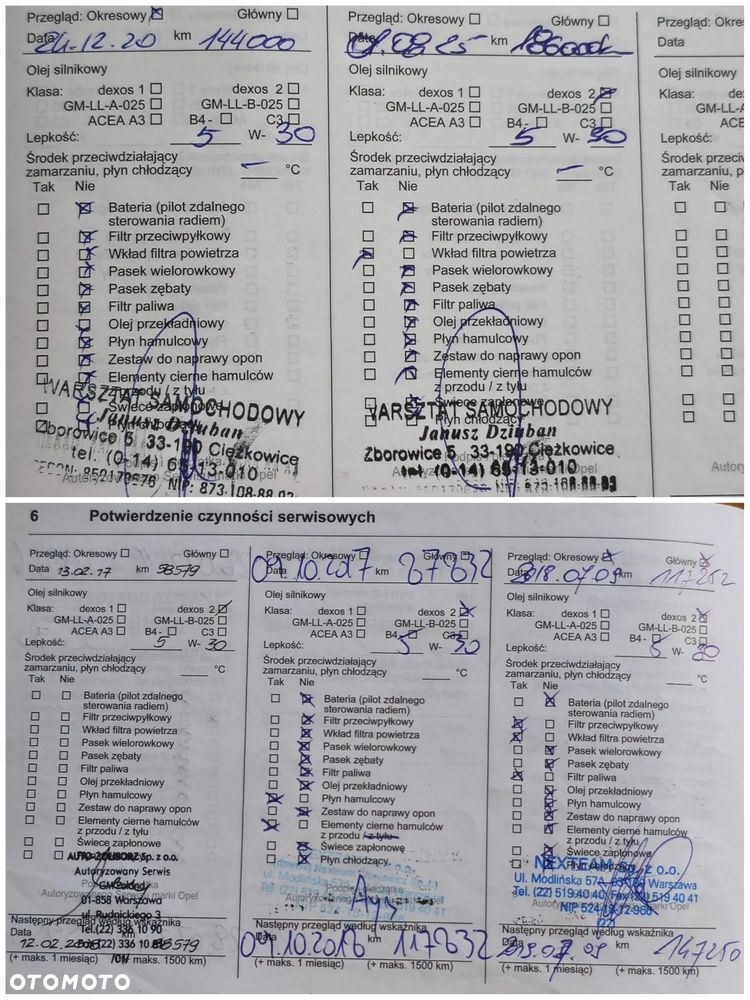 Przegląd: Okresowy Główny
Data 21.12.20 km 144000
Olej silnikowy
Klasa: dexos 1 dexos 2
GM-LL-A-025 GM-LL-B-025
ACEA A3 B4 - C3
Lepkość: 5 W- 30
Środek przeciwdziałający
zamarzaniu, płyn chłodzący — °C
Tak Nie
Bateria (pilot zdalnego
sterowania radiem)
Filtr przeciwpyłkowy
Wkład filtra powietrza
Pasek wielorowkowy
Pasek zębaty
Filtr paliwa
Olej przekładniowy
Płyn hamulcowy
Zestaw do naprawy opon
Elementy cierne hamulców
z przodu / z tyłu
Świece zapłonowe
Płyn chłodzący
WARSZTAT SAMOCHODOWY
Janusz Dziuban
Zborowice 5, 33-190 Ciężkowice
tel. (0-14) 65-13-010
NIP: 873-108-88-93
Przegląd: Okresowy Główny
Data 08 25 km
Olej silnikowy
Klasa: dexos 1 dexos 2
GM-LL-A-025 GM-LL-B-025
ACEA A3 B4 - C3
Lepkość: 5 W- 30
Środek przeciwdziałający
zamarzaniu, płyn chłodzący — °C
Tak Nie
Bateria (pilot zdalnego
sterowania radiem)
Filtr przeciwpyłkowy
Wkład filtra powietrza
Pasek wielorowkowy
Pasek zębaty
Filtr paliwa
Olej przekładniowy
Płyn hamulcowy
Zestaw do naprawy opon
Elementy cierne hamulców
z przodu / z tyłu
Świece zapłonowe
Płyn chłodzący
WARSZTAT SAMOCHODOWY
Janusz Dziuban
Zborowice 5 33-190 Ciężkowice
tel. (0-14) 65-13-010
NIP: 873-108-88-93
Przegląd: Okre
Data
Olej silnikowy
Klasa:
GM-LL-A
ACE
Lepkość:
Środek przeciw
zamarzaniu, p
Tak Nie
Bate
stero
Filtr
Wkła
Pase
Pase
Filtr
Olej
Płyn
Zest
Elem
z prz
Świe
Płyn
Autory
6 Potwierdzenie czynności serwisowych
Przegląd: Okresowy Główny
Data 13.02.17 km 58579
Olej silnikowy
Klasa: dexos 1 dexos 2
GM-LL-A-025 GM-LL-B-025
ACEA A3 B4 - C3
Lepkość: 5 W- 30
Środek przeciwdziałający
zamarzaniu, płyn chłodzący °C
Tak Nie
Bateria (pilot zdalnego
sterowania radiem)
Filtr przeciwpyłkowy
Wkład filtra powietrza
Pasek wielorowkowy
Pasek zębaty
Filtr paliwa
Olej przekładniowy
Płyn hamulcowy
Zestaw do naprawy opon
Elementy cierne hamulców
z przodu / z tyłu
Świece zapłonowe
AUTO-ŻOLIBORZ Sp. z o.o.
Autoryzowany Serwis
01-858 Warszawa
ul. Rudnickiego 3
Tel.(22) 336 10 90
Następny przegląd według wskaźnika
Data 12.02. km
(+ maks. 1 miesiąc) (+ maks. 1500 km)
Przegląd: Okresowy Główny
Data 09.10.2017 km 87832
Olej silnikowy
Klasa: dexos 1 dexos 2
GM-LL-A-025 GM-LL-B-025
ACEA A3 B4 - C3
Lepkość: 5 W- 30
Środek przeciwdziałający
zamarzaniu, płyn chłodzący °C
Tak Nie
Bateria (pilot zdalnego
sterowania radiem)
Filtr przeciwpyłkowy
Wkład filtra powietrza
Pasek wielorowkowy
Pasek zębaty
Filtr paliwa
Olej przekładniowy
Płyn hamulcowy
Zestaw do naprawy opon
Elementy cierne hamulców
z przodu / z tyłu
Świece zapłonowe
Płyn chłodzący
Następny przegląd według wskaźnika
Data 09.10.2018 117832
(+ maks. 1 miesiąc) (+ maks. 1500 km)
Przegląd: Okresowy Główny
Data 2018.07.09 km 117252
Olej silnikowy
Klasa: dexos 1 dexos 2
GM-LL-A-025 GM-LL-B-025
ACEA A3 B4 - C3
Lepkość: 5 W- 30
Środek przeciwdziałający
zamarzaniu, płyn chłodzący °C
Tak Nie
Bateria (pilot zdalnego
sterowania radiem)
Filtr przeciwpyłkowy
Wkład filtra powietrza
Pasek wielorowkowy
Pasek zębaty
Filtr paliwa
Olej przekładniowy
Płyn hamulcowy
Zestaw do naprawy opon
Elementy cierne hamulców
z przodu / z tyłu
Świece zapłonowe
Płyn chłodzący
NEXTEAM Sp. z o.o.
Ul. Modlińska Warszawa
Tel. (22) 519 40 40 Fax (22) 519 40 41
Następny przegląd według wskaźnika
Data 147250
(+ maks. 1 miesiąc) (+ maks. 1500 km)
OTOMOTO